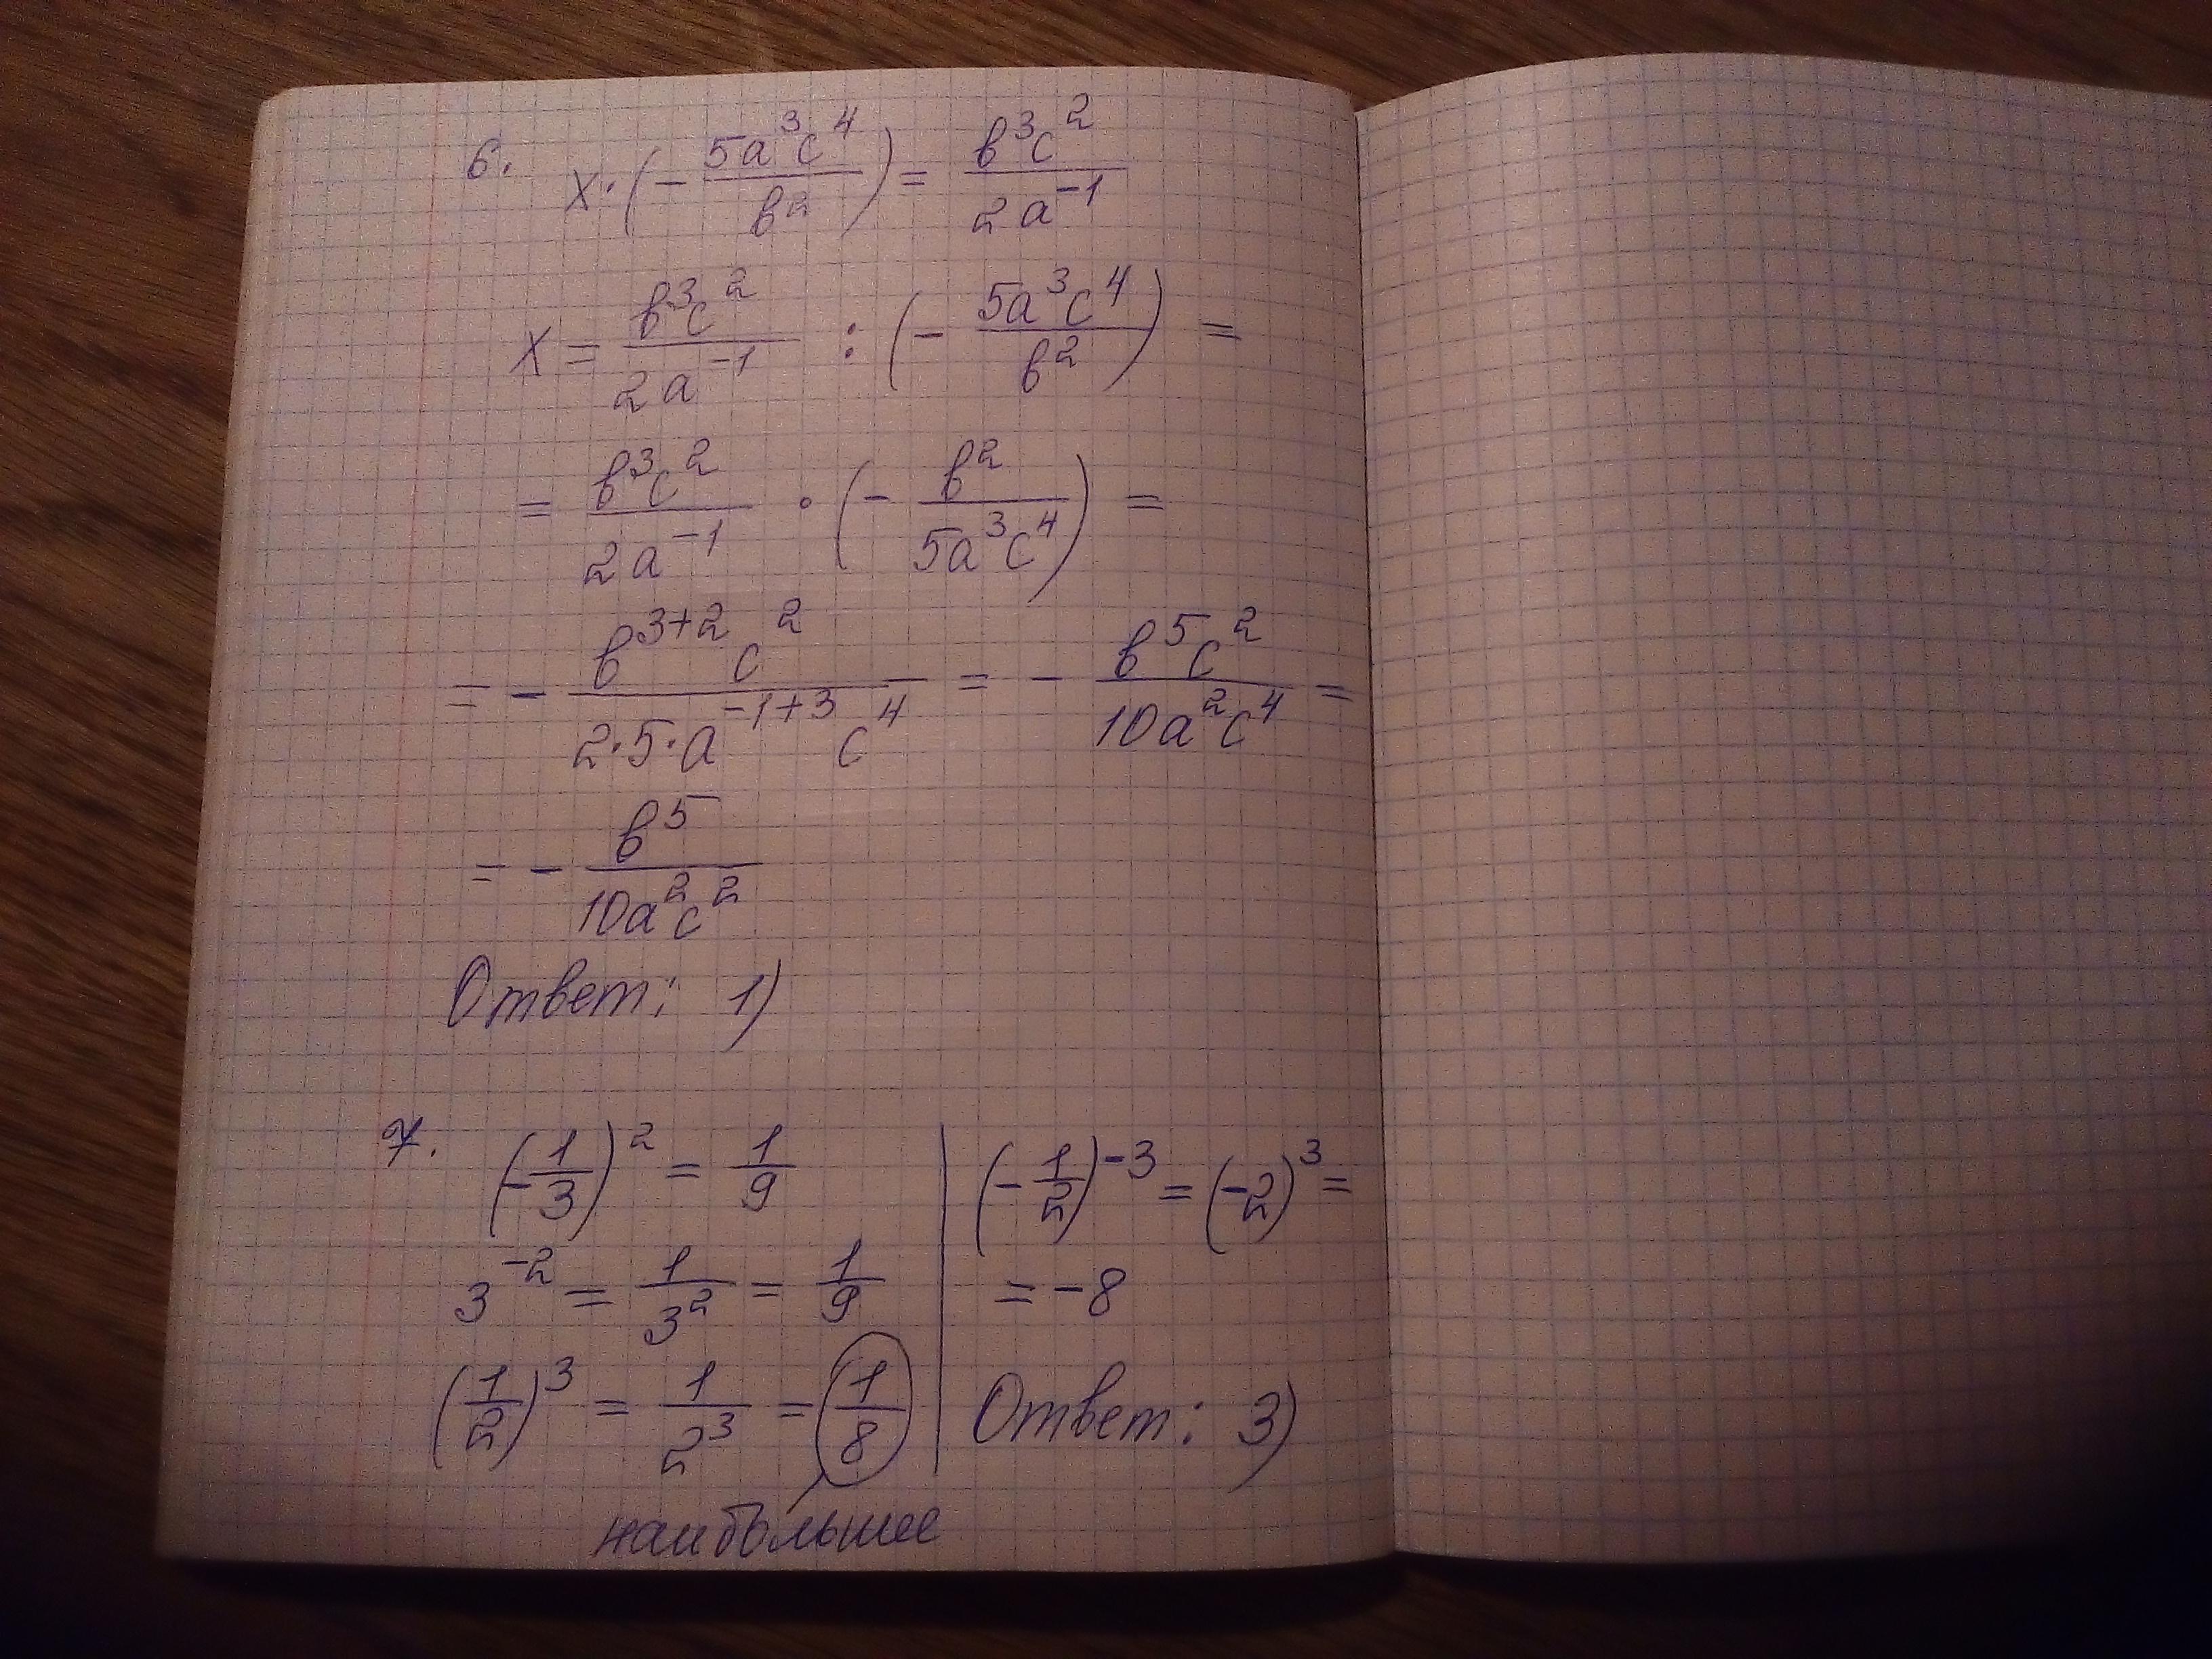 6. x·(-5a³c⁴/в²) = в³c²/2a⁻¹
x = в³c²/2a⁻¹ : (-5a³c⁴/в²) =
= в³c²/2a⁻¹ · (-в²/5a³c⁴) =
= -в³⁺²c²/2·5·a⁻¹⁺³c⁴ = -в⁵c²/10a²c⁴ =
= -в⁵/10a²c²
Ответ: 1)
7. (-1/3)² = 1/9
3⁻² = 1/3² = 1/9
(1/2)³ = 1/2³ = 1/8
наибольшее
(-1/2)⁻³ = (-2)³ =
= -8
Ответ: 3)